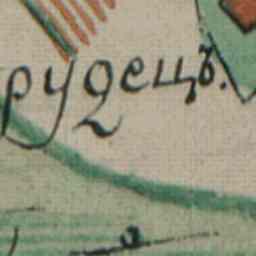 рудецъ.